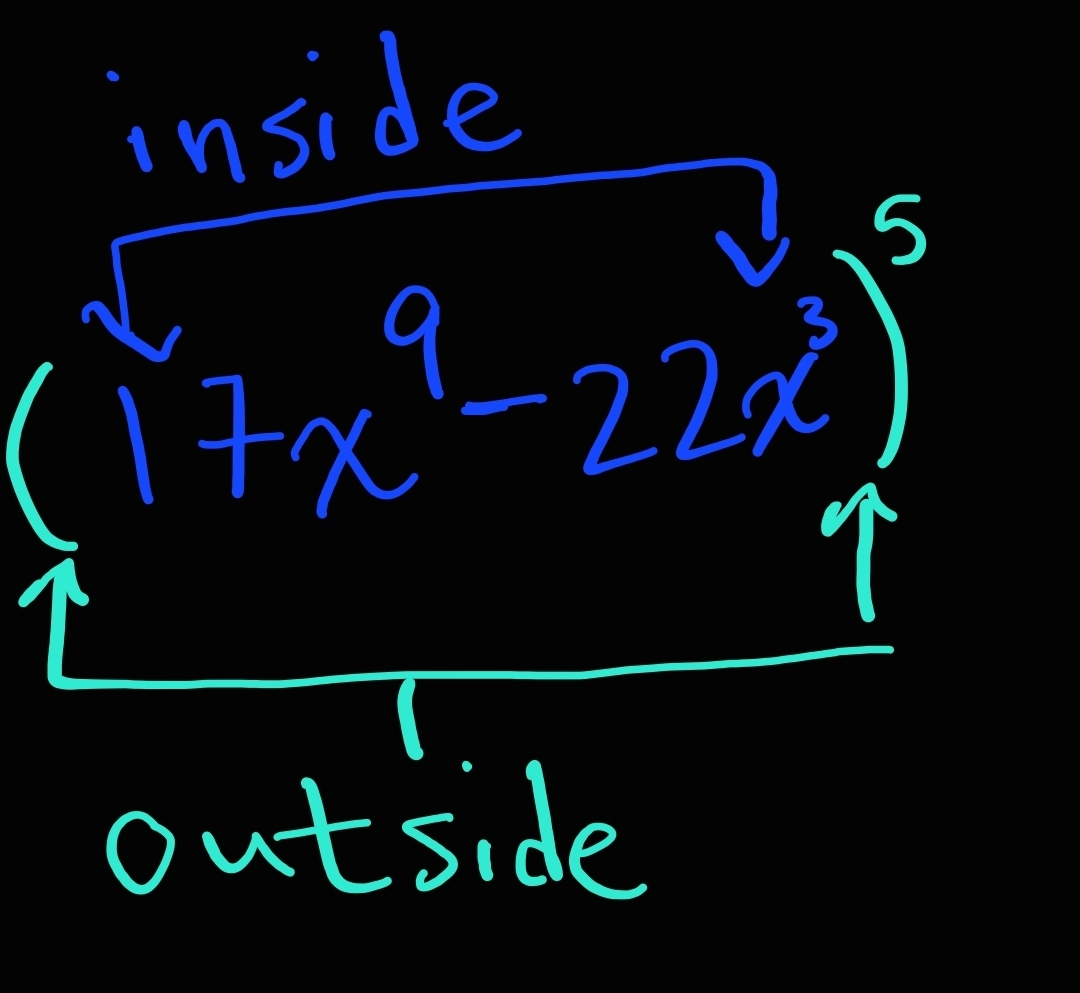 inside
(17x⁹-22x³)⁵
outside